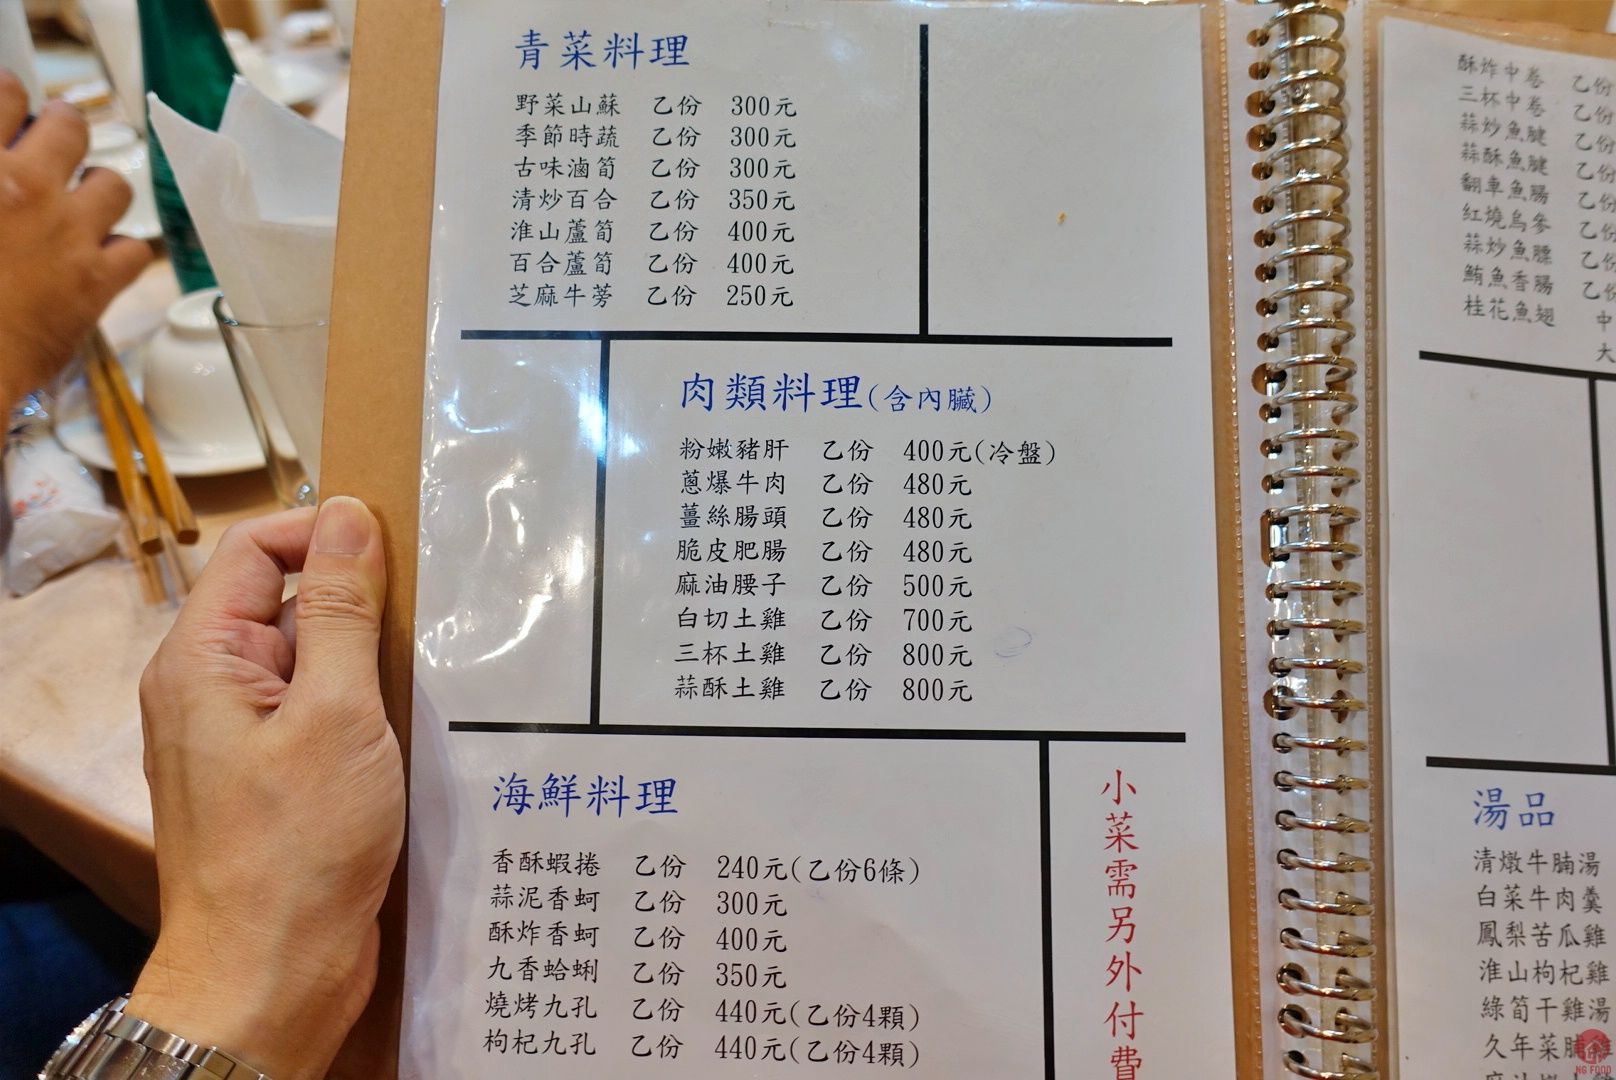 青菜料理
野菜山蘇 乙份 300元
季節時蔬 乙份 300元
古味滷筍 乙份 300元
清炒百合 乙份 350元
淮山蘆筍 乙份 400元
百合蘆筍 乙份 400元
芝麻牛蒡 乙份 250元
肉類料理(含內臟)
粉嫩豬肝 乙份 400元(冷盤)
蔥爆牛肉 乙份 480元
薑絲腸頭 乙份 480元
脆皮肥腸 乙份 480元
麻油腰子 乙份 500元
白切土雞 乙份 700元
三杯土雞 乙份 800元
蒜酥土雞 乙份 800元
海鮮料理
香酥蝦捲 乙份 240元(乙份6條)
蒜泥香蚵 乙份 300元
酥炸香蚵 乙份 400元
九香蛤蜊 乙份 350元
燒烤九孔 乙份 440元(乙份4顆)
枸杞九孔 乙份 440元(乙份4顆)
小菜需另外付費
酥炸中卷 乙份
三杯中卷 乙份
蒜炒魚腱 乙份
蒜酥魚腱 乙份
翻車魚腸 乙份
紅燒烏參 乙份
蒜炒魚膘 乙份
鮪魚香腸 乙份
桂花魚翅 中
大
湯品
清燉牛腩湯
白菜牛肉羹
鳳梨苦瓜雞
淮山枸杞雞
綠筍干雞湯
久年菜脯雞
NG FOOD